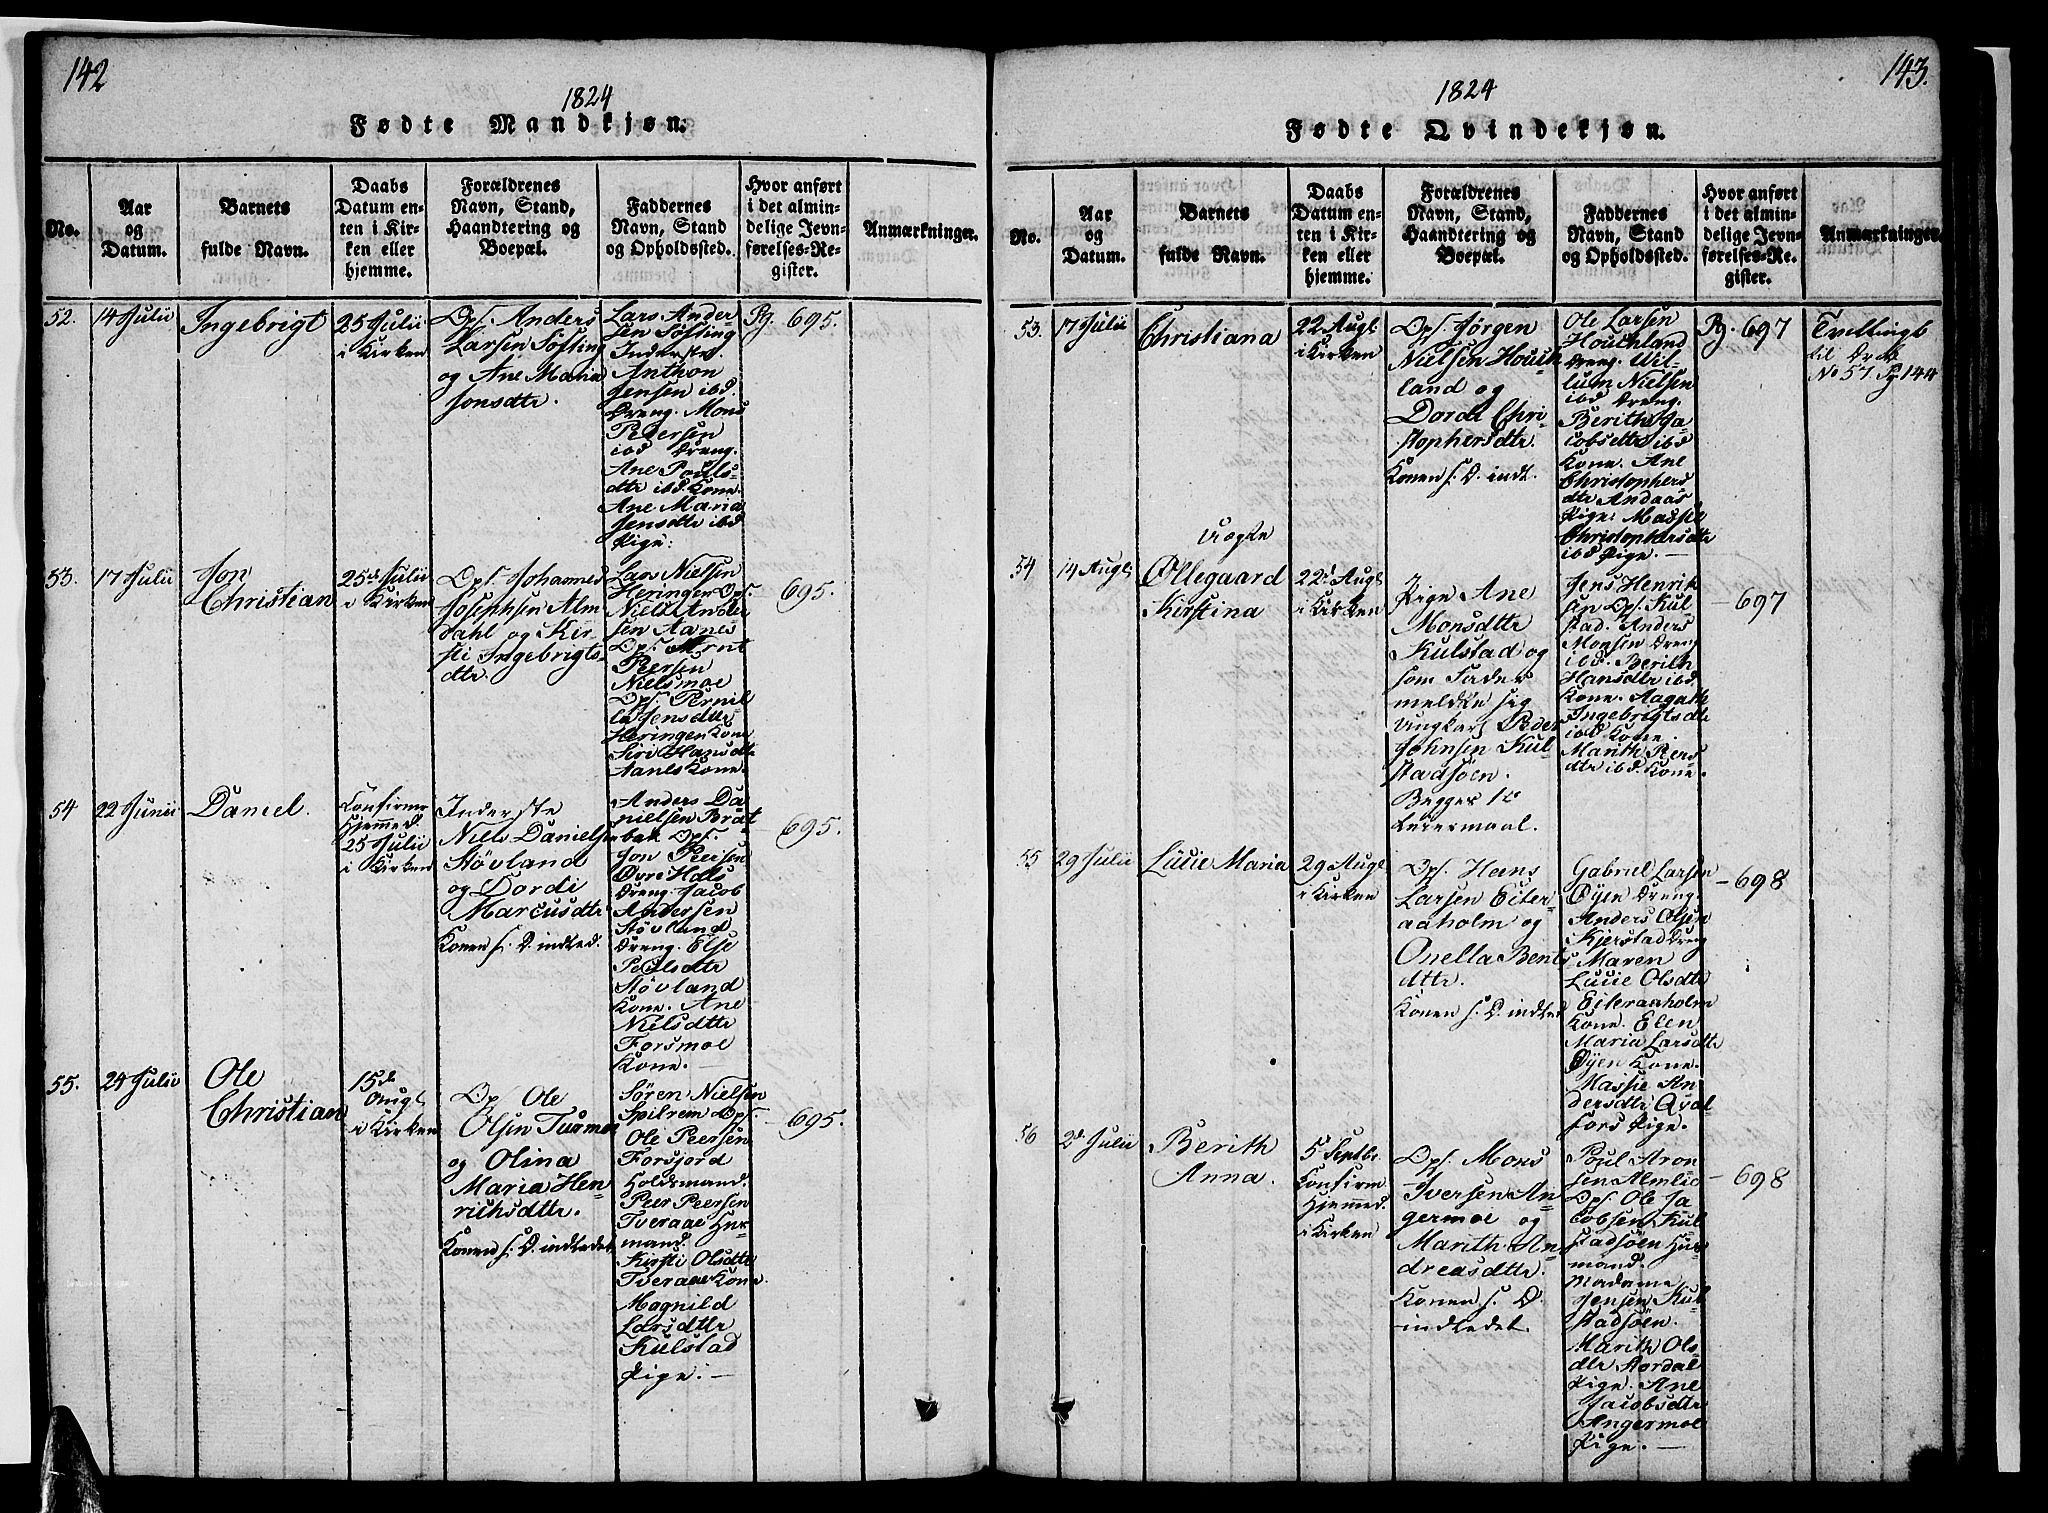 142
1824
Fødte Mandkjøn.
No.
Aar
og
Datum.
Barnets
fulde Navn.
Daabs
Datum en-
ten i Kir-
ken eller
hjemme.
Forældrenes
Navn, Stand,
Haandtering og
Boepæl.
Faddernes
Navn, Stand
og Opholdssted.
Hvor anført
i det almin-
delige Jevn-
førelses-Re-
gister.
Anmærkninger.
52.
14 Julii
Ingebrigt
25 Julii
i Kirken
Ops. Anders
Larsen Søfting
og Ane Maria
Jonsdtr.
Lars Ander
sen Søfting
Inderste.
Anthon
Jensen ibd.
Dreng. Mons
Pedersen
ibd Dreng.
Ane Pouls-
dtr ibd. Kone.
Ane Maria
Jensdtr ibd
Pige.
Pg. 695.
53.
17 Julii
Jon
Christian
25de Julii
i Kirken
Ops. Johannes
Josephsen Alm-
dahl og Kir-
sti Ingebrigts-
dtr.
Lars Nielsen
Heringen Ops.
Niels Ander
sen Aanes
Ops. Arnt
Peersen
Nielsmoe
Ops. Pernil
la Jensdtr
Heringen Kone
Siri Hansdtr
Aanes Kone.
- 695.
54
22 Junii
Daniel.
Confirme
Hjemmed.
25 Julii
i Kirken
Inderste
Niels Danielsen
Støvland
og Dordi
Marcusdtr
Konen s. D. indled.
Anders Da-
nielsen Brat-
bak Ops.
Jon Peersen
Øvre Hals
Dreng. Jacob
Andersen
Støvland
Dreng. Else
Poulsdtr
Støvland
Kone. Ane
Nielsdtr
Forsmoe
Kone.
- 695.
55.
24 Julii
Ole
Christian
15de
Augl.
i Kirken
Ops. Ole
Olsen Turmoe
og Olina
Maria Hen-
richsdtr.
Konen s. D. indledet
Søren Nielsen
Spilrem Ops.
Ole Peersen
Forsjord
Holdsmand.
Peer Peersen
Tveraae Huus-
mand.
Kirsti Olsdtr
Tveraae Kone.
Magnild
Larsdtr
Kulstad
Pige.
- 695.
143.
1824
Fødte Qvindekjøn.
No.
Aar
og
Datum.
Barnets
fulde Navn.
Daabs
Datum en-
ten i Kir-
ken eller
hjemme.
Forældrenes
Navn, Stand,
Haandtering og
Boepæl.
Faddernes
Navn, Stand
og Opholdssted.
Hvor anført
i det almin-
delige Jevn-
førelses-Re-
gister.
Anmærkninger.
53.
17 Julii
Christiana
22 Augl.
i Kirken
Ops. Jørgen
Nielsen Houch
land og
Dordi Chri-
stophersdtr.
Konen s. D. indt.
Ole Larsen
Houchland
Dreng. Wil-
lum Nielsen
ibd Dreng.
Berith Ja-
cobsdtr ibd
Kone. Ane
Christophers
dtr Andaas
Pige. Massie
Christophersdtr
ibd Pige.
Pg. 697
Tvilling
til
No 57 Pg 144
54
14 Augl.
Uægte
Øllegaard
Kirstina
22d Augl.
i Kirken
Pige Ane
Monsdtr
Kulstad og
som Fader
meldte sig
Ungkarl Peer
Johnsen Kul
stadsøen.
Begges 1te
Leiermaal.
Jens Henrik
sen Ops. Kul
stad. Anders
Monsen Dreng
ibd. Berith
Hansdtr ibd.
Kone. Aagathe
Ingebrigtsdtr
ibd Kone.
Marith Peers
dtr ibd. Kone.
- 697
55
29 Julii
Lucie Maria
29 Augl.
i Kirken
Ops. Hans
Larsen Eiter-
aaholm og
Onella Bents
dtr.
Konen s. D. indled
Gabriel Larsen
Øyen Dreng.
Anders Olsen
Kjerstad Dreng
Maren
Lucie Olsdtr
Eiteraaholm
Kone. Elen
Maria Larsdtr
Øyen Kone.
Massie An
dersdtr Qval
fors Pige.
- 698
56
2d Julii
Berith
Anna.
5 Septbr.
Confirm
Hjemmed.
i Kirken
Ops. Mons
Iversen An-
germoe og
Marith An
dreasdtr.
Konen s. D.
indledet.
Poul Aron
sen Almlie
Ops. Ole Ja
cobsen Kul
stadsøen Huus
mand.
Madame
Jensen Kul
stadsøen.
Marith Ols
dtr Aardal
Pige. Ane
Jacobsdtr
Angermoe
Pige.
- 698